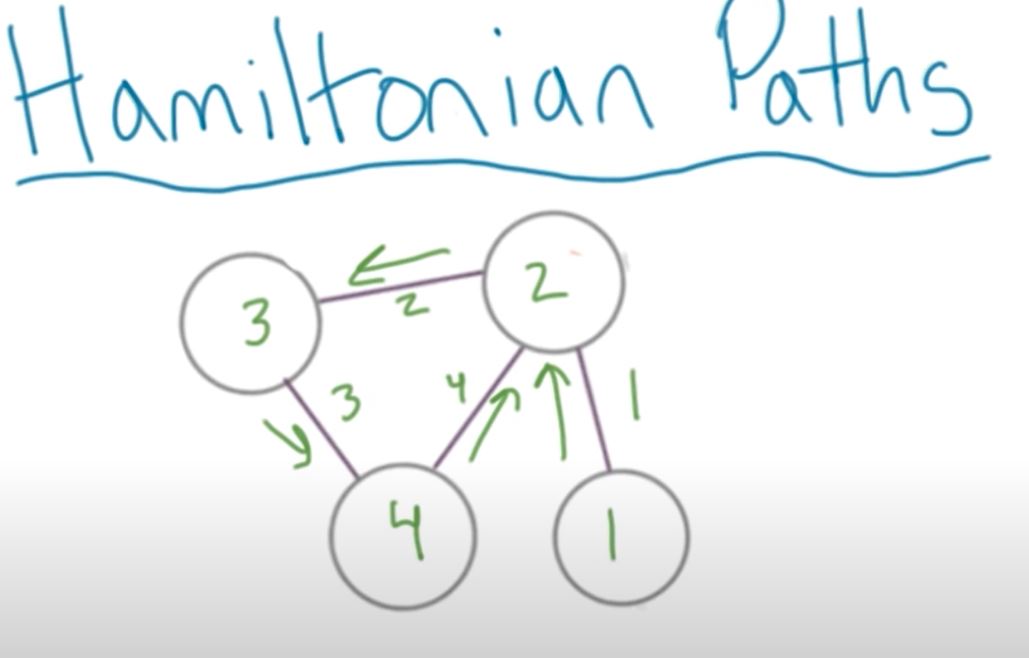 Hamiltonian Paths
2
3
2
3
4
1
4
1